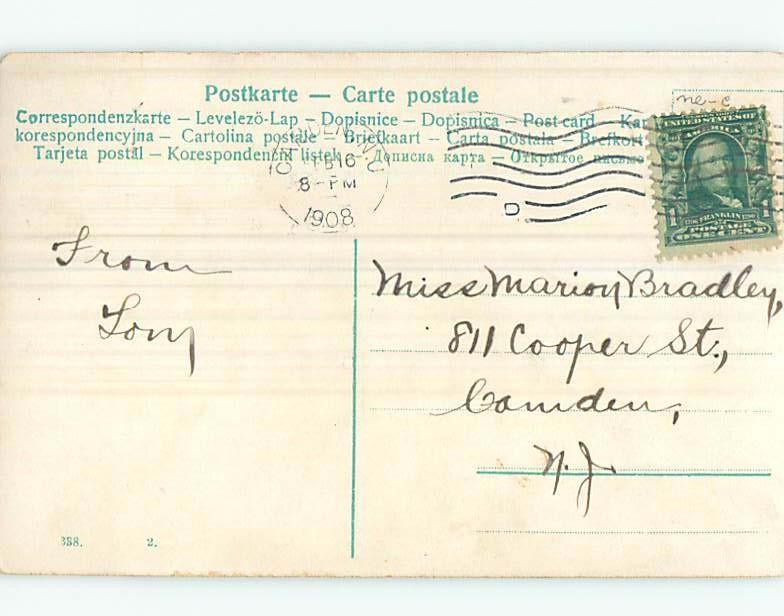 Postkarte — Carte postale
Correspondenzkarte — Levelező-Lap — Dopisnice — Dopisnica — Post card — Kar
korespondencyjna — Cartolina postale — Briefkaart — Carta postala — Brefkort
Tarjeta postal — Korespondenčni listek — Дописна карта — Открытое письмо
ne-c
CAMDEN, N.J.
FEB 16
8 - PM
1908
D
UNITED STATES OF
AMERICA
1706 FRANKLIN 1790
1 POSTAGE 1
ONE CENT
From
Tom
Miss Marion Bradley,
811 Cooper St.,
Camden,
N.J.
388. 2.